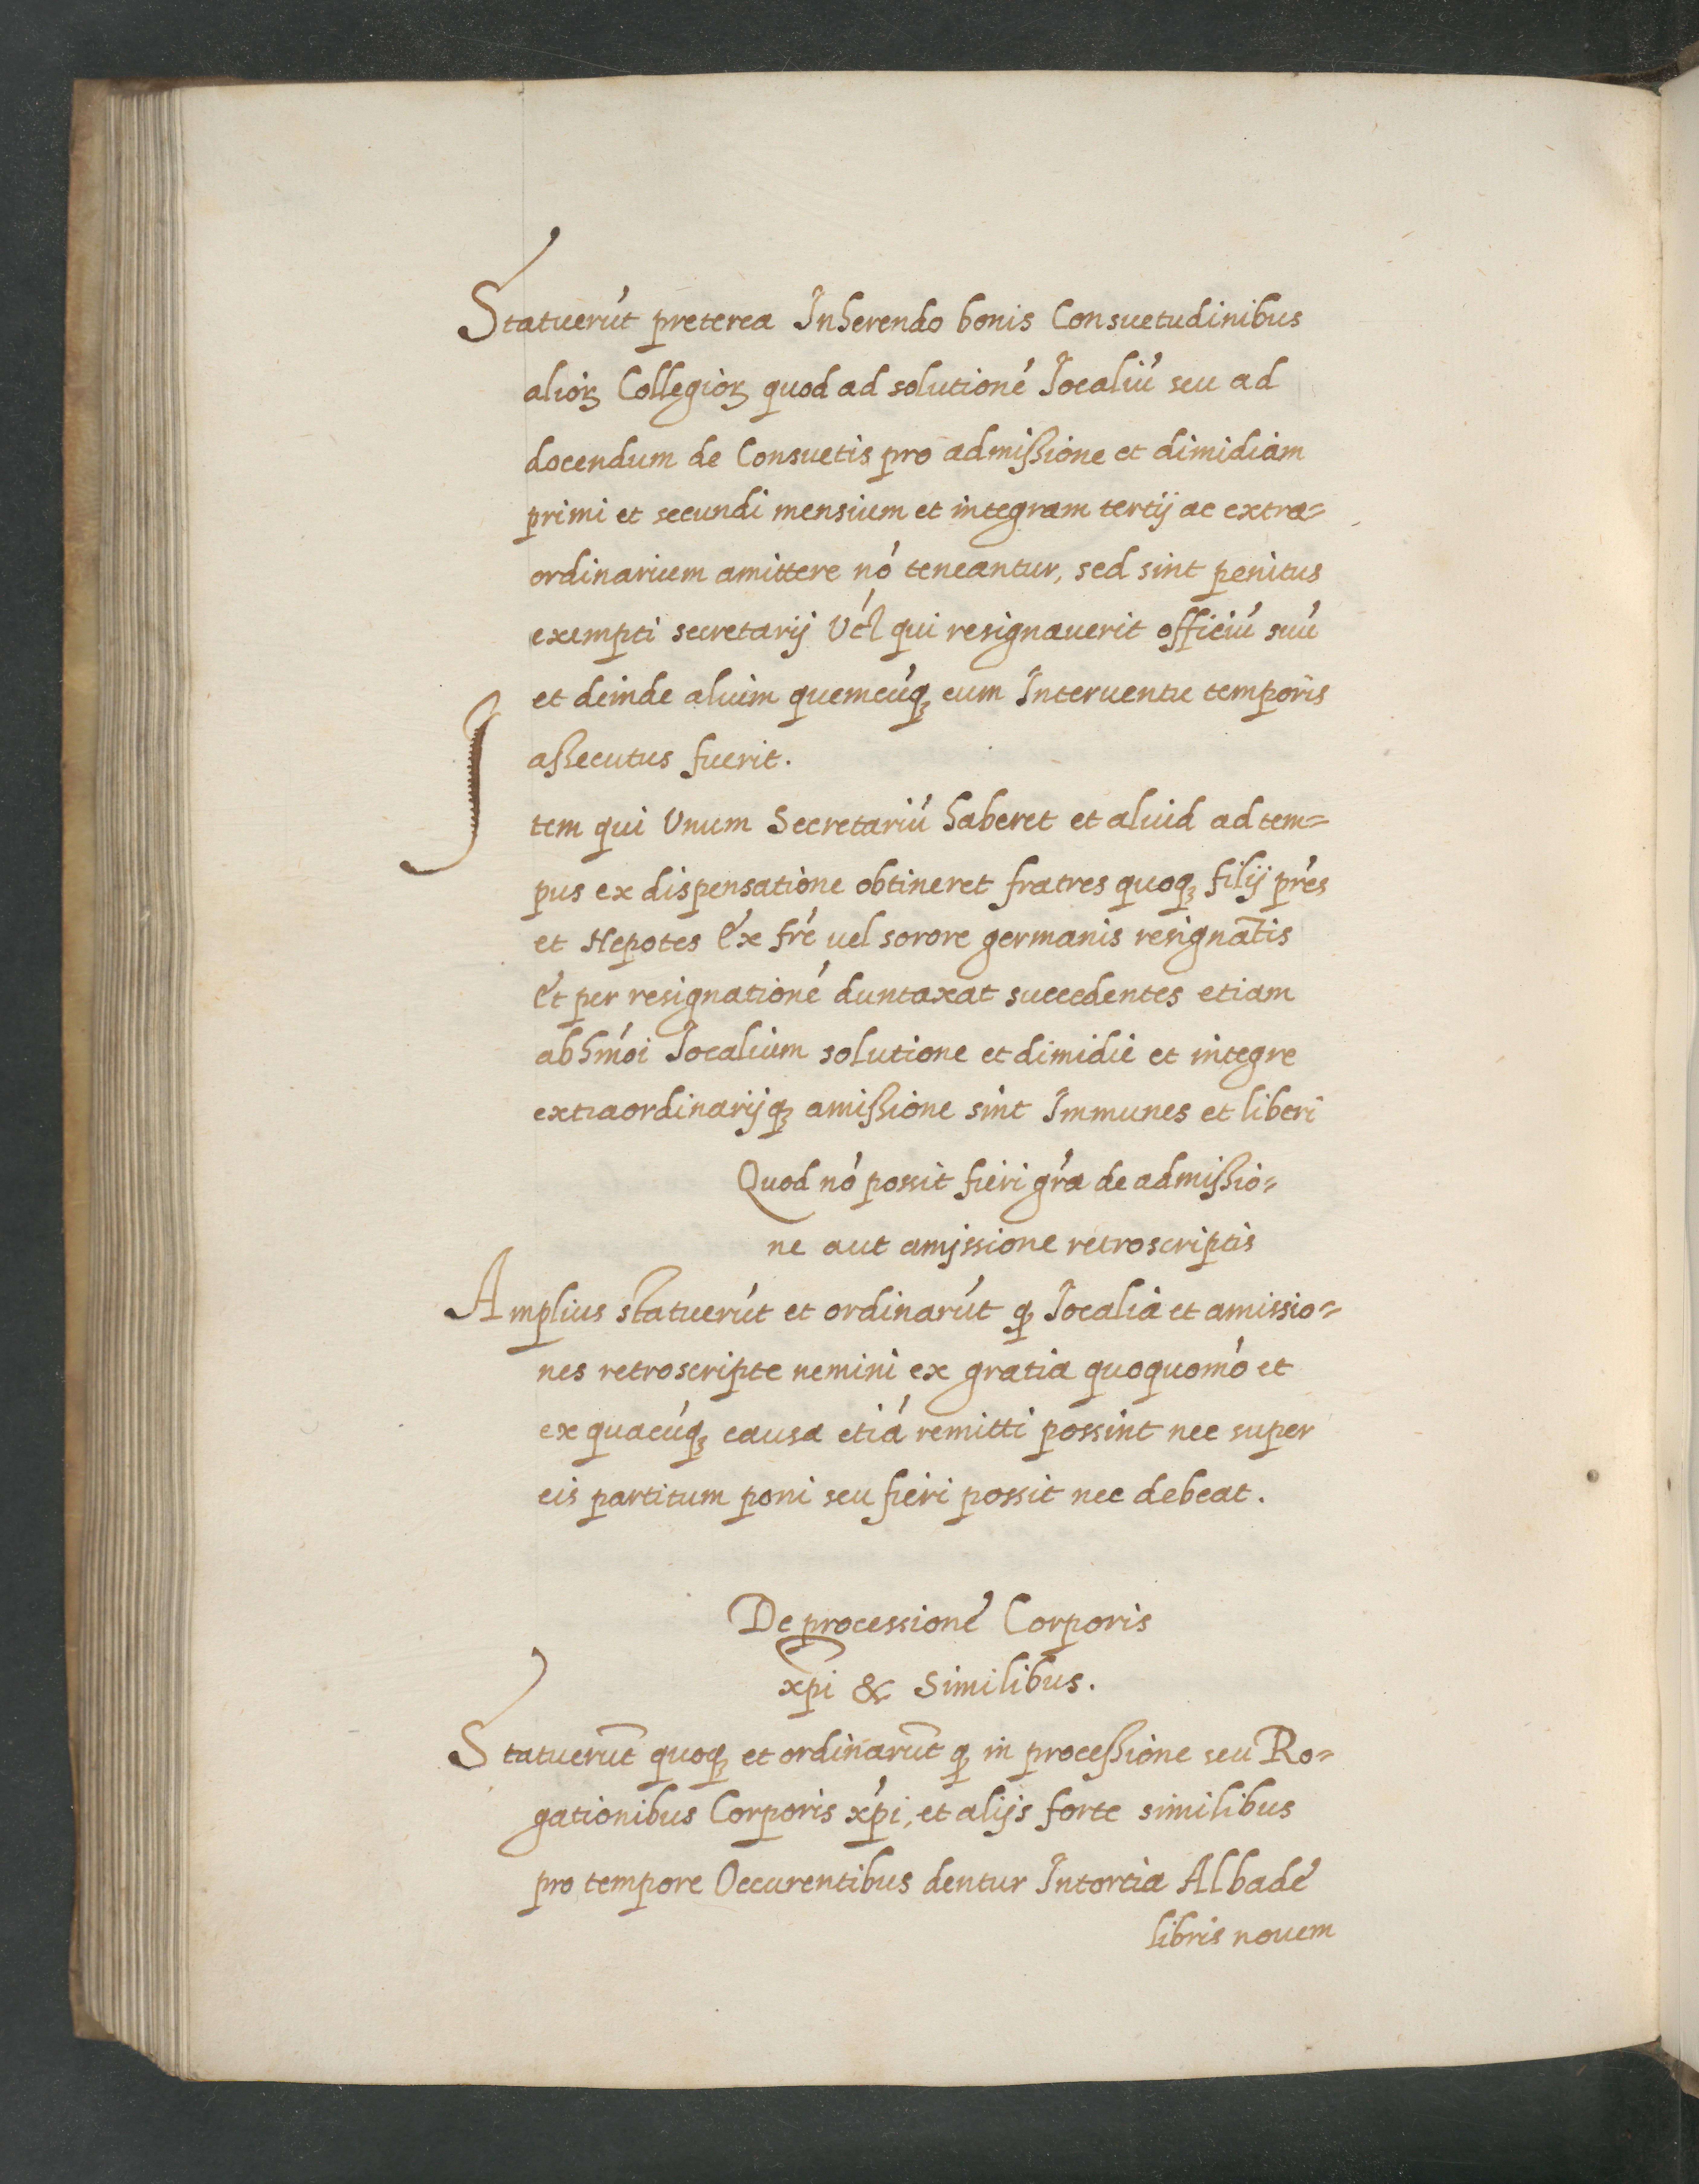 Statuerūt preterea Inherendo bonis Consuetudinibus
alioꝝ Collegioꝝ quod ad solutionē Jocaliū seu ad
docendum de Consuetis pro admissione et dimidiam
primi et secundi mensium et integram tertij ac extra=
ordinarium amittere nō teneantur, sed sint penitus
exempti secretarij Vĺ qui resignauerit officiū suū
et deinde alium quemcūqꝫ cum Interuentu temporis
assecutus fuerit.
Item qui Vnum Secretariū haberet et aliud ad tem=
pus ex dispensatione obtineret fratres quoqꝫ filij pr̄es
et Nepotes Ex fr̄e uel sorore germanis resignātis
Et per resignationē duntaxat succedentes etiam
ab hm̄oi Jocalium solutione et dimidie et integre
extraordinarijqꝫ amissione sint Immunes et liberi
Quod nō possit fieri gr̄a de admissio=
ne aut amissione retroscriptis
Amplius statuerūt et ordinarūt qꝫ Jocalia et amissio=
nes retroscripte nemini ex gratia quoquomō et
ex quacūqꝫ causa etiā remitti possint nec super
eis partitum poni seu fieri possit nec debeat.
De processione Corporis
xp̄i & Similibus.
Statuerūt quoqꝫ et ordinarūt qꝫ in processione seu Ro=
gationibus Corporis xp̄i, et alijs forte similibus
pro tempore Occurentibus dentur Intortia Alba de
libris nouem